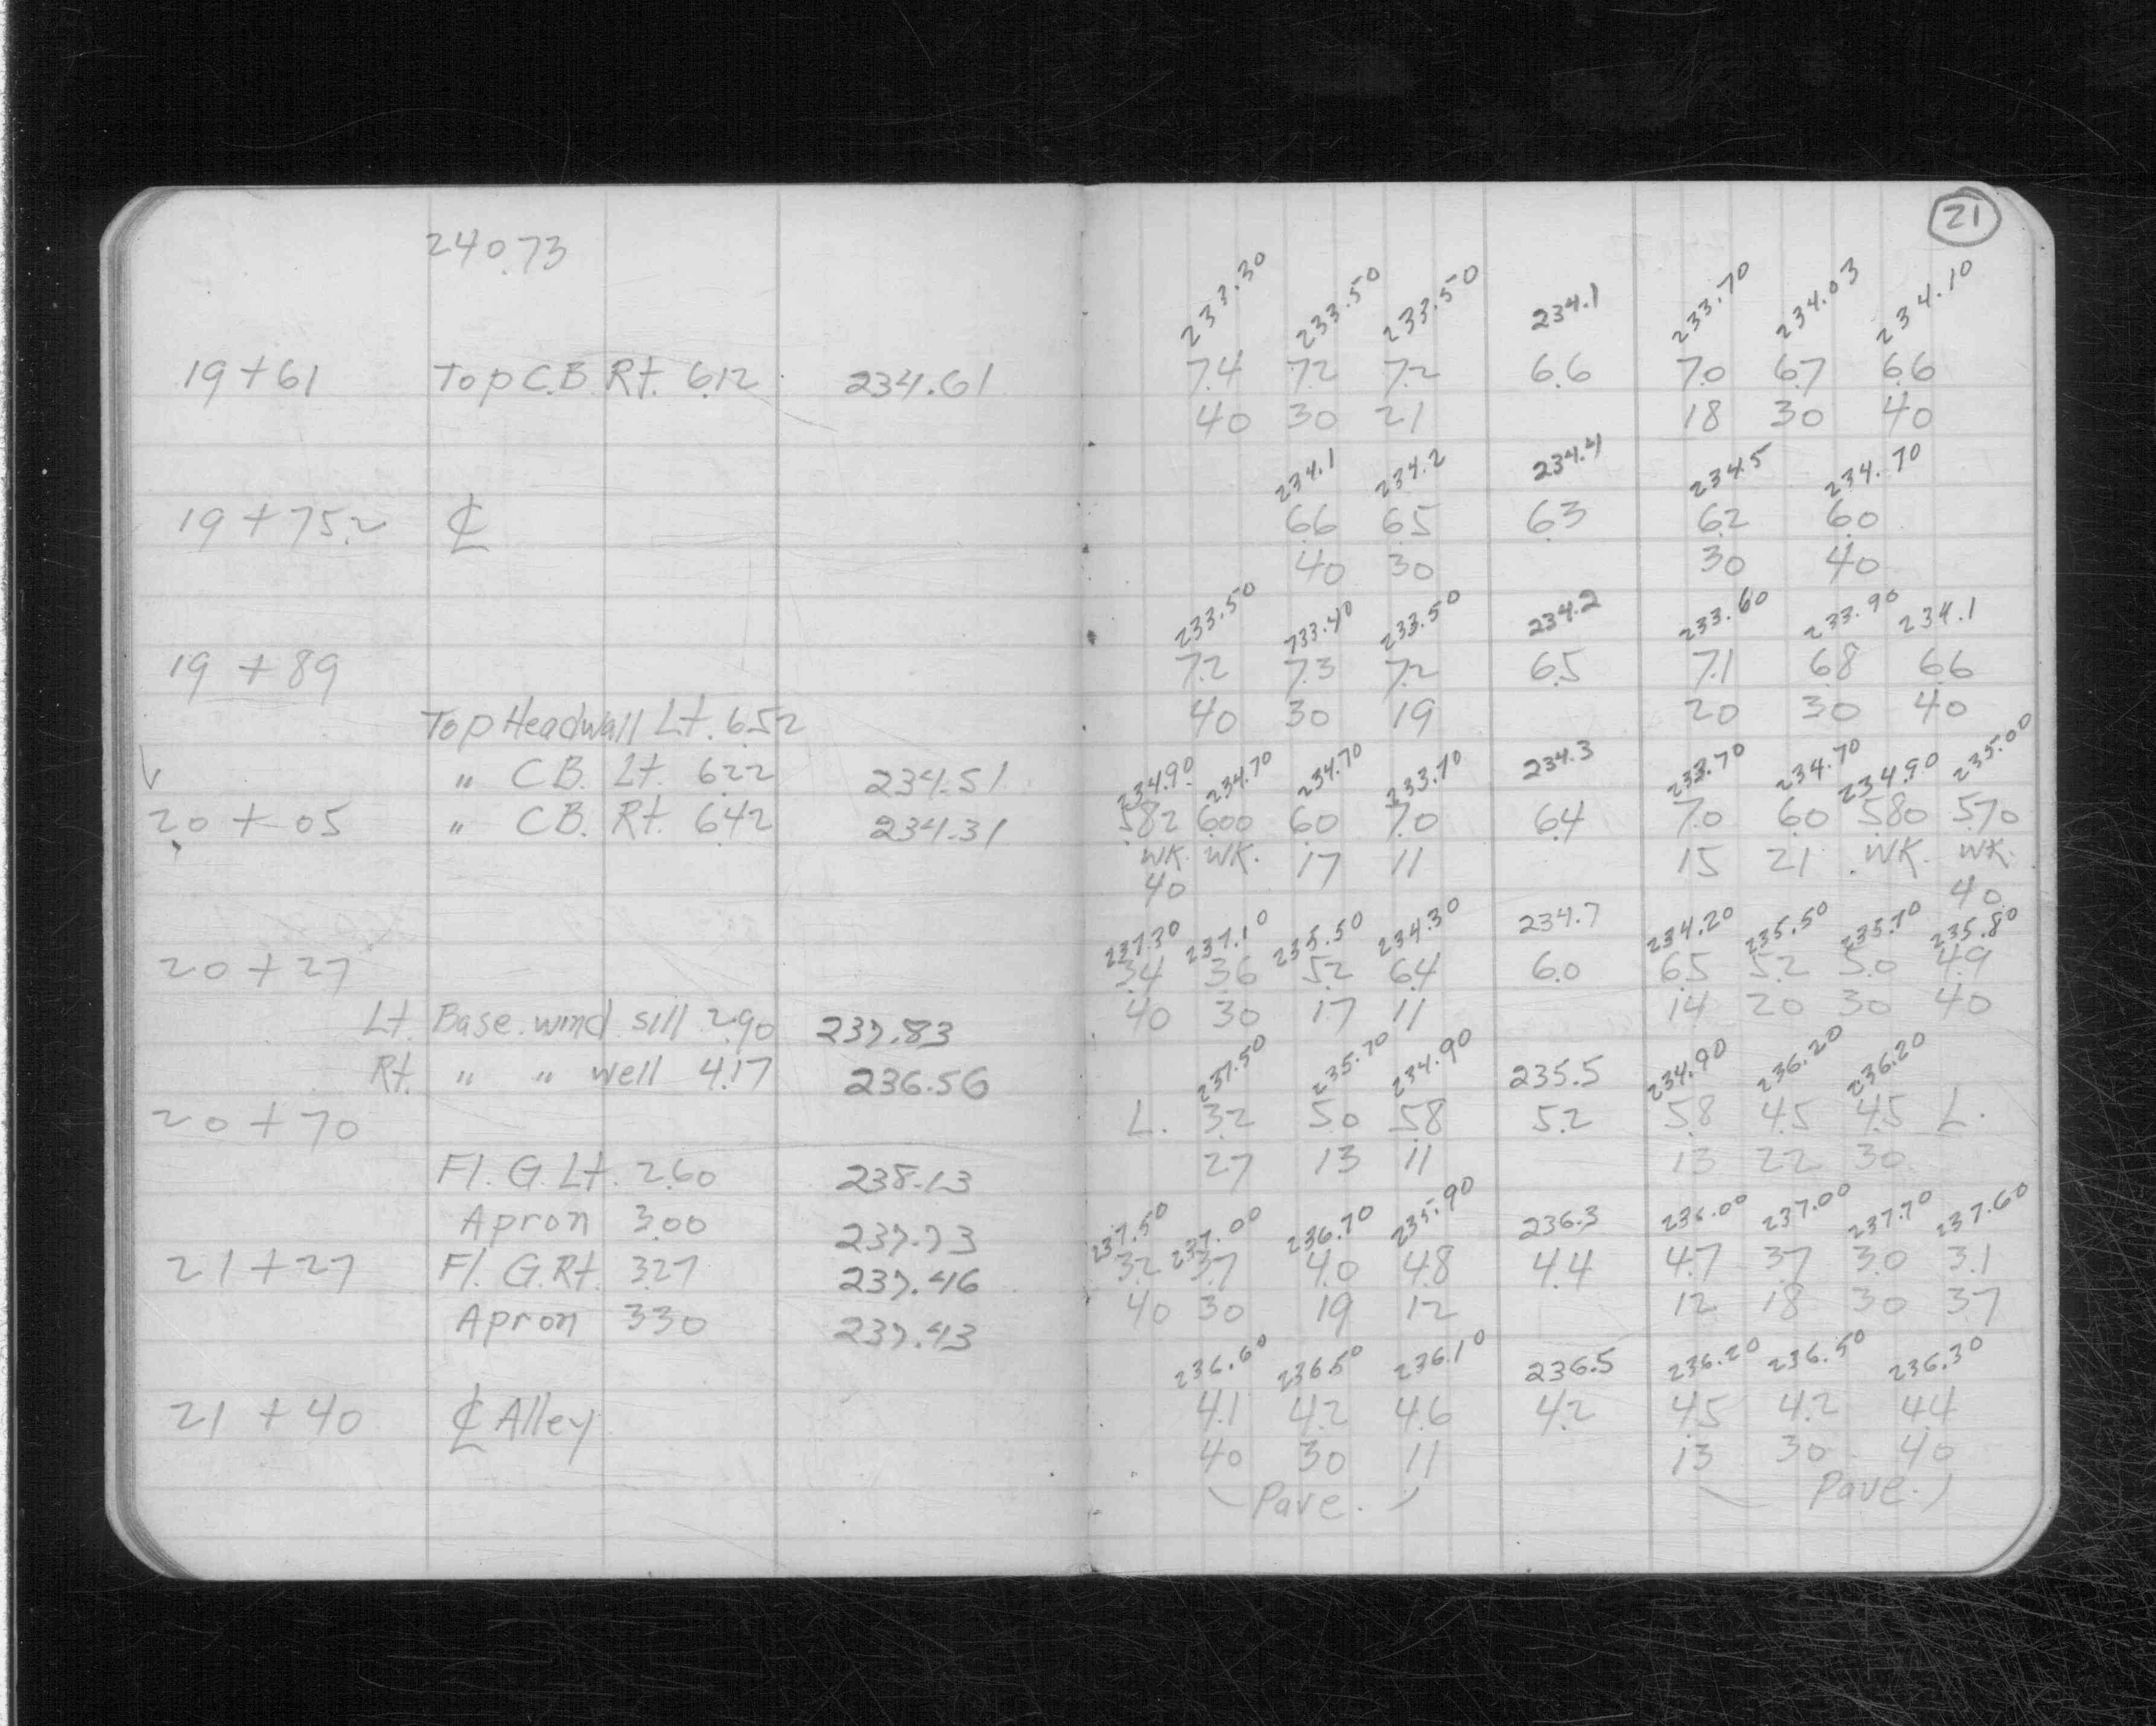 21
240.73
233.30 233.50 233.50 234.1 233.70 234.03 234.10
19+61 Top C.B. Rt. 6.12 234.61 7.4 7.2 7.2 6.6 7.0 6.7 6.6
40 30 21 18 30 40
234.1 234.2 234.4 234.5 234.70
19+75.2 ℄ 6.6 6.5 6.3 6.2 6.0
40 30 30 40
233.50 733.40 233.50 234.2 233.60 233.90 234.1
19+89 7.2 7.3 7.2 6.5 7.1 6.8 6.6
Top Headwall Lt. 6.52 40 30 19 20 30 40
" C.B. Lt. 6.22 234.51 234.90 234.70 234.70 233.70 234.3 233.70 234.70 234.90 235.00
20+05 " C.B. Rt. 6.42 234.31 5.82 6.00 6.0 7.0 6.4 7.0 6.0 5.80 5.70
WK. WK. 17 11 15 21 WK. WK.
40 40
237.30 237.10 235.50 234.30 234.7 234.20 235.50 235.70 235.80
20+27 3.4 3.6 5.2 6.4 6.0 6.5 5.2 5.0 4.9
Lt. Base. wind sill 2.90 237.83 40 30 17 11 14 20 30 40
Rt. " " well 4.17 236.56 237.50 235.70 234.90 235.5 234.90 236.20 236.20
20+70 L. 3.2 5.0 5.8 5.2 5.8 4.5 4.5 L.
Fl. G. Lt. 2.60 238.13 27 13 11 13 22 30
Apron 3.00 237.73 237.50 237.00 236.70 235.90 236.3 236.00 237.00 237.70 237.60
21+27 Fl. G. Rt. 3.27 237.46 3.2 3.7 4.0 4.8 4.4 4.7 3.7 3.0 3.1
Apron 3.30 237.43 40 30 19 12 12 18 30 37
236.60 236.50 236.10 236.5 236.20 236.50 236.30
21+40 ℄ Alley 4.1 4.2 4.6 4.2 4.5 4.2 4.4
40 30 11 13 30 40
Pave. Pave.